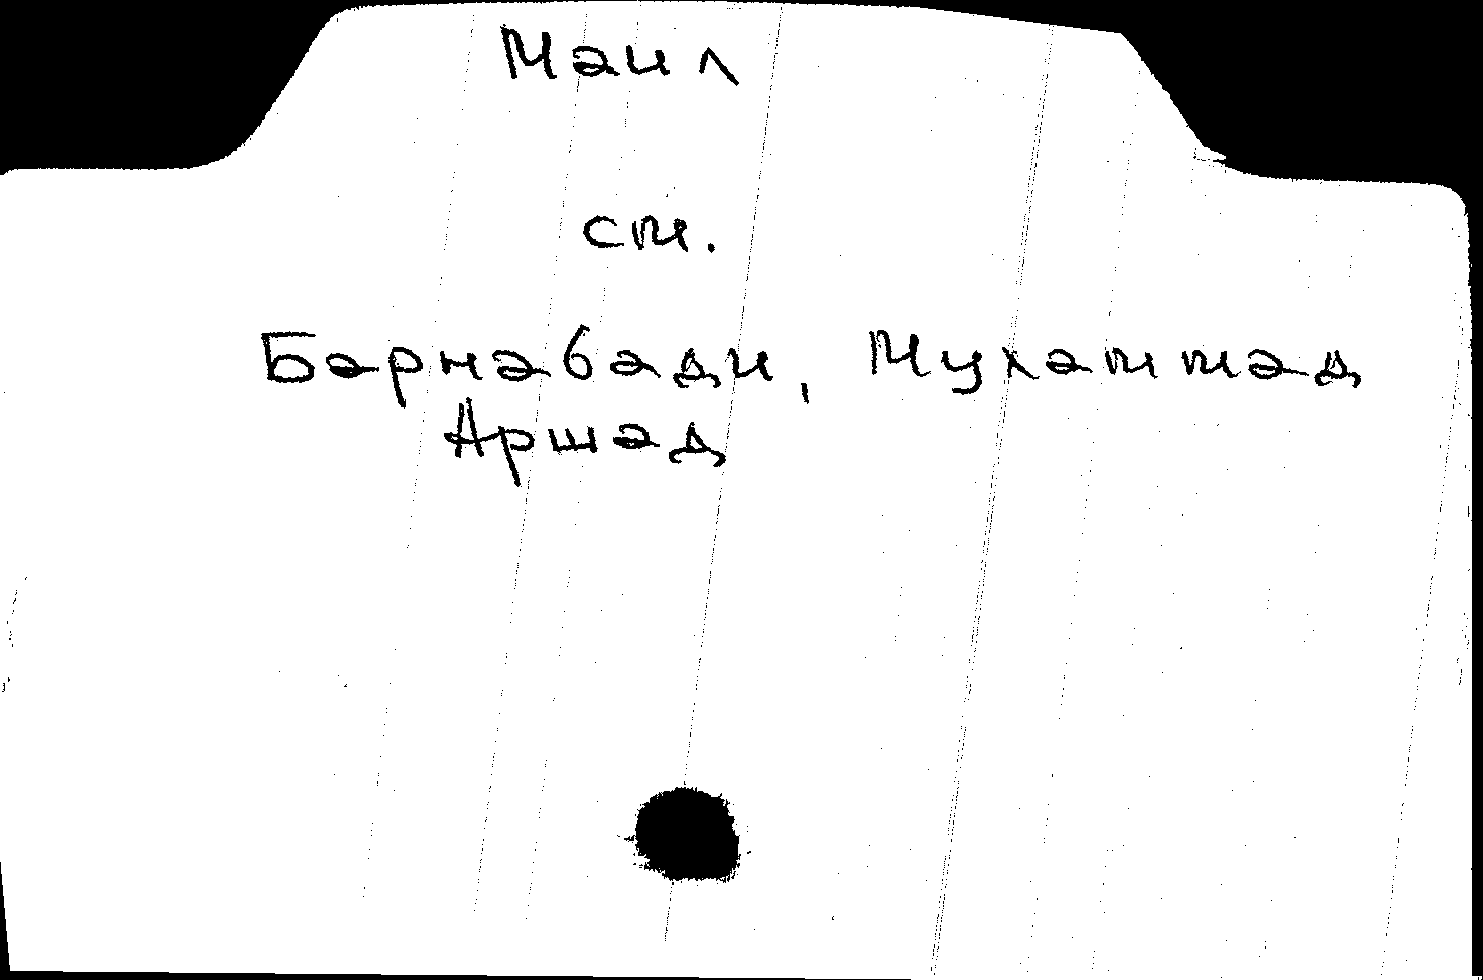 Маил
см.
Барнабади, Мухаммад
Аршад